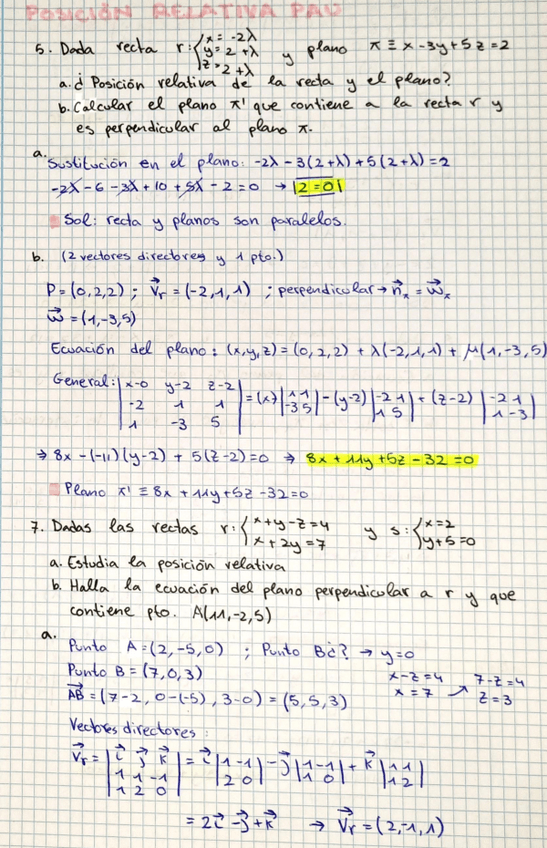 POSICIÓN RELATIVA PAU
5. Dada recta r: { x = -2λ
y = 2 + λ
z = 2 + λ y plano π ≡ x - 3y + 5z = 2
a. ¿ Posición relativa de la recta y el plano?
b. Calcular el plano π' que contiene a la recta r y
es perpendicular al plano π.
a. Sustitución en el plano: -2λ - 3(2+λ) + 5(2+λ) = 2
-2λ - 6 - 3λ + 10 + 5λ - 2 = 0 → |2=0|
Sol: recta y planos son paralelos.
b. (2 vectores directores y 1 pto.)
P = (0,2,2) ; v⃗r = (-2,1,1) ; perpendicular → n⃗π = w⃗π
w⃗ = (1,-3,5)
Ecuación del plano: (x,y,z) = (0,2,2) + λ(-2,1,1) + μ(1,-3,5)
General: | x-0 y-2 z-2 | = (x) | 1 1 | - (y-2) | -2 1 | + (z-2) | -2 1 |
| -2 1 1 | | -3 5 | | 1 5 | | 1 -3 |
| 1 -3 5 |
⇒ 8x - (-11)(y-2) + 5(z-2) = 0 ⇒ 8x + 11y + 5z - 32 = 0
Plano π' ≡ 8x + 11y + 5z - 32 = 0
7. Dadas las rectas r: { x + y - z = 4 y s: { x = 2
x + 2y = 7 y + 5 = 0
a. Estudia la posición relativa
b. Halla la ecuación del plano perpendicular a r y que
contiene pto. A(11,-2,5)
a. Punto A = (2,-5,0) ; Punto B¿? → y = 0
Punto B = (7,0,3) x - z = 4 7 - z = 4
x = 7 ↗ z = 3
AB⃗ = (7-2, 0-(-5), 3-0) = (5,5,3)
Vectores directores:
v⃗r = | i⃗ j⃗ k⃗ | = i⃗ | 1 -1 | - j⃗ | 1 -1 | + k⃗ | 1 1 |
| 1 1 -1 | | 2 0 | | 1 0 | | 1 2 |
| 1 2 0 |
= 2i⃗ - j⃗ + k⃗ → v⃗r = (2,-1,1)